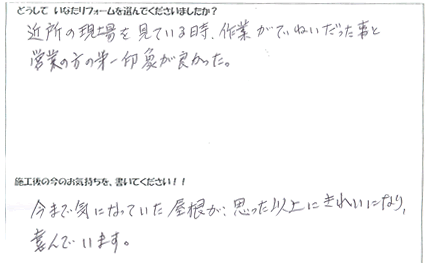 どうして いなだリフォームを選んでくださいましたか？
近所の現場を見ている時、作業がていねいだった事と
営業の方の第一印象が良かった。
施工後の今のお気持ちを、書いてください！！
今まで気になっていた屋根が、思った以上にきれいになり、
喜んでいます。